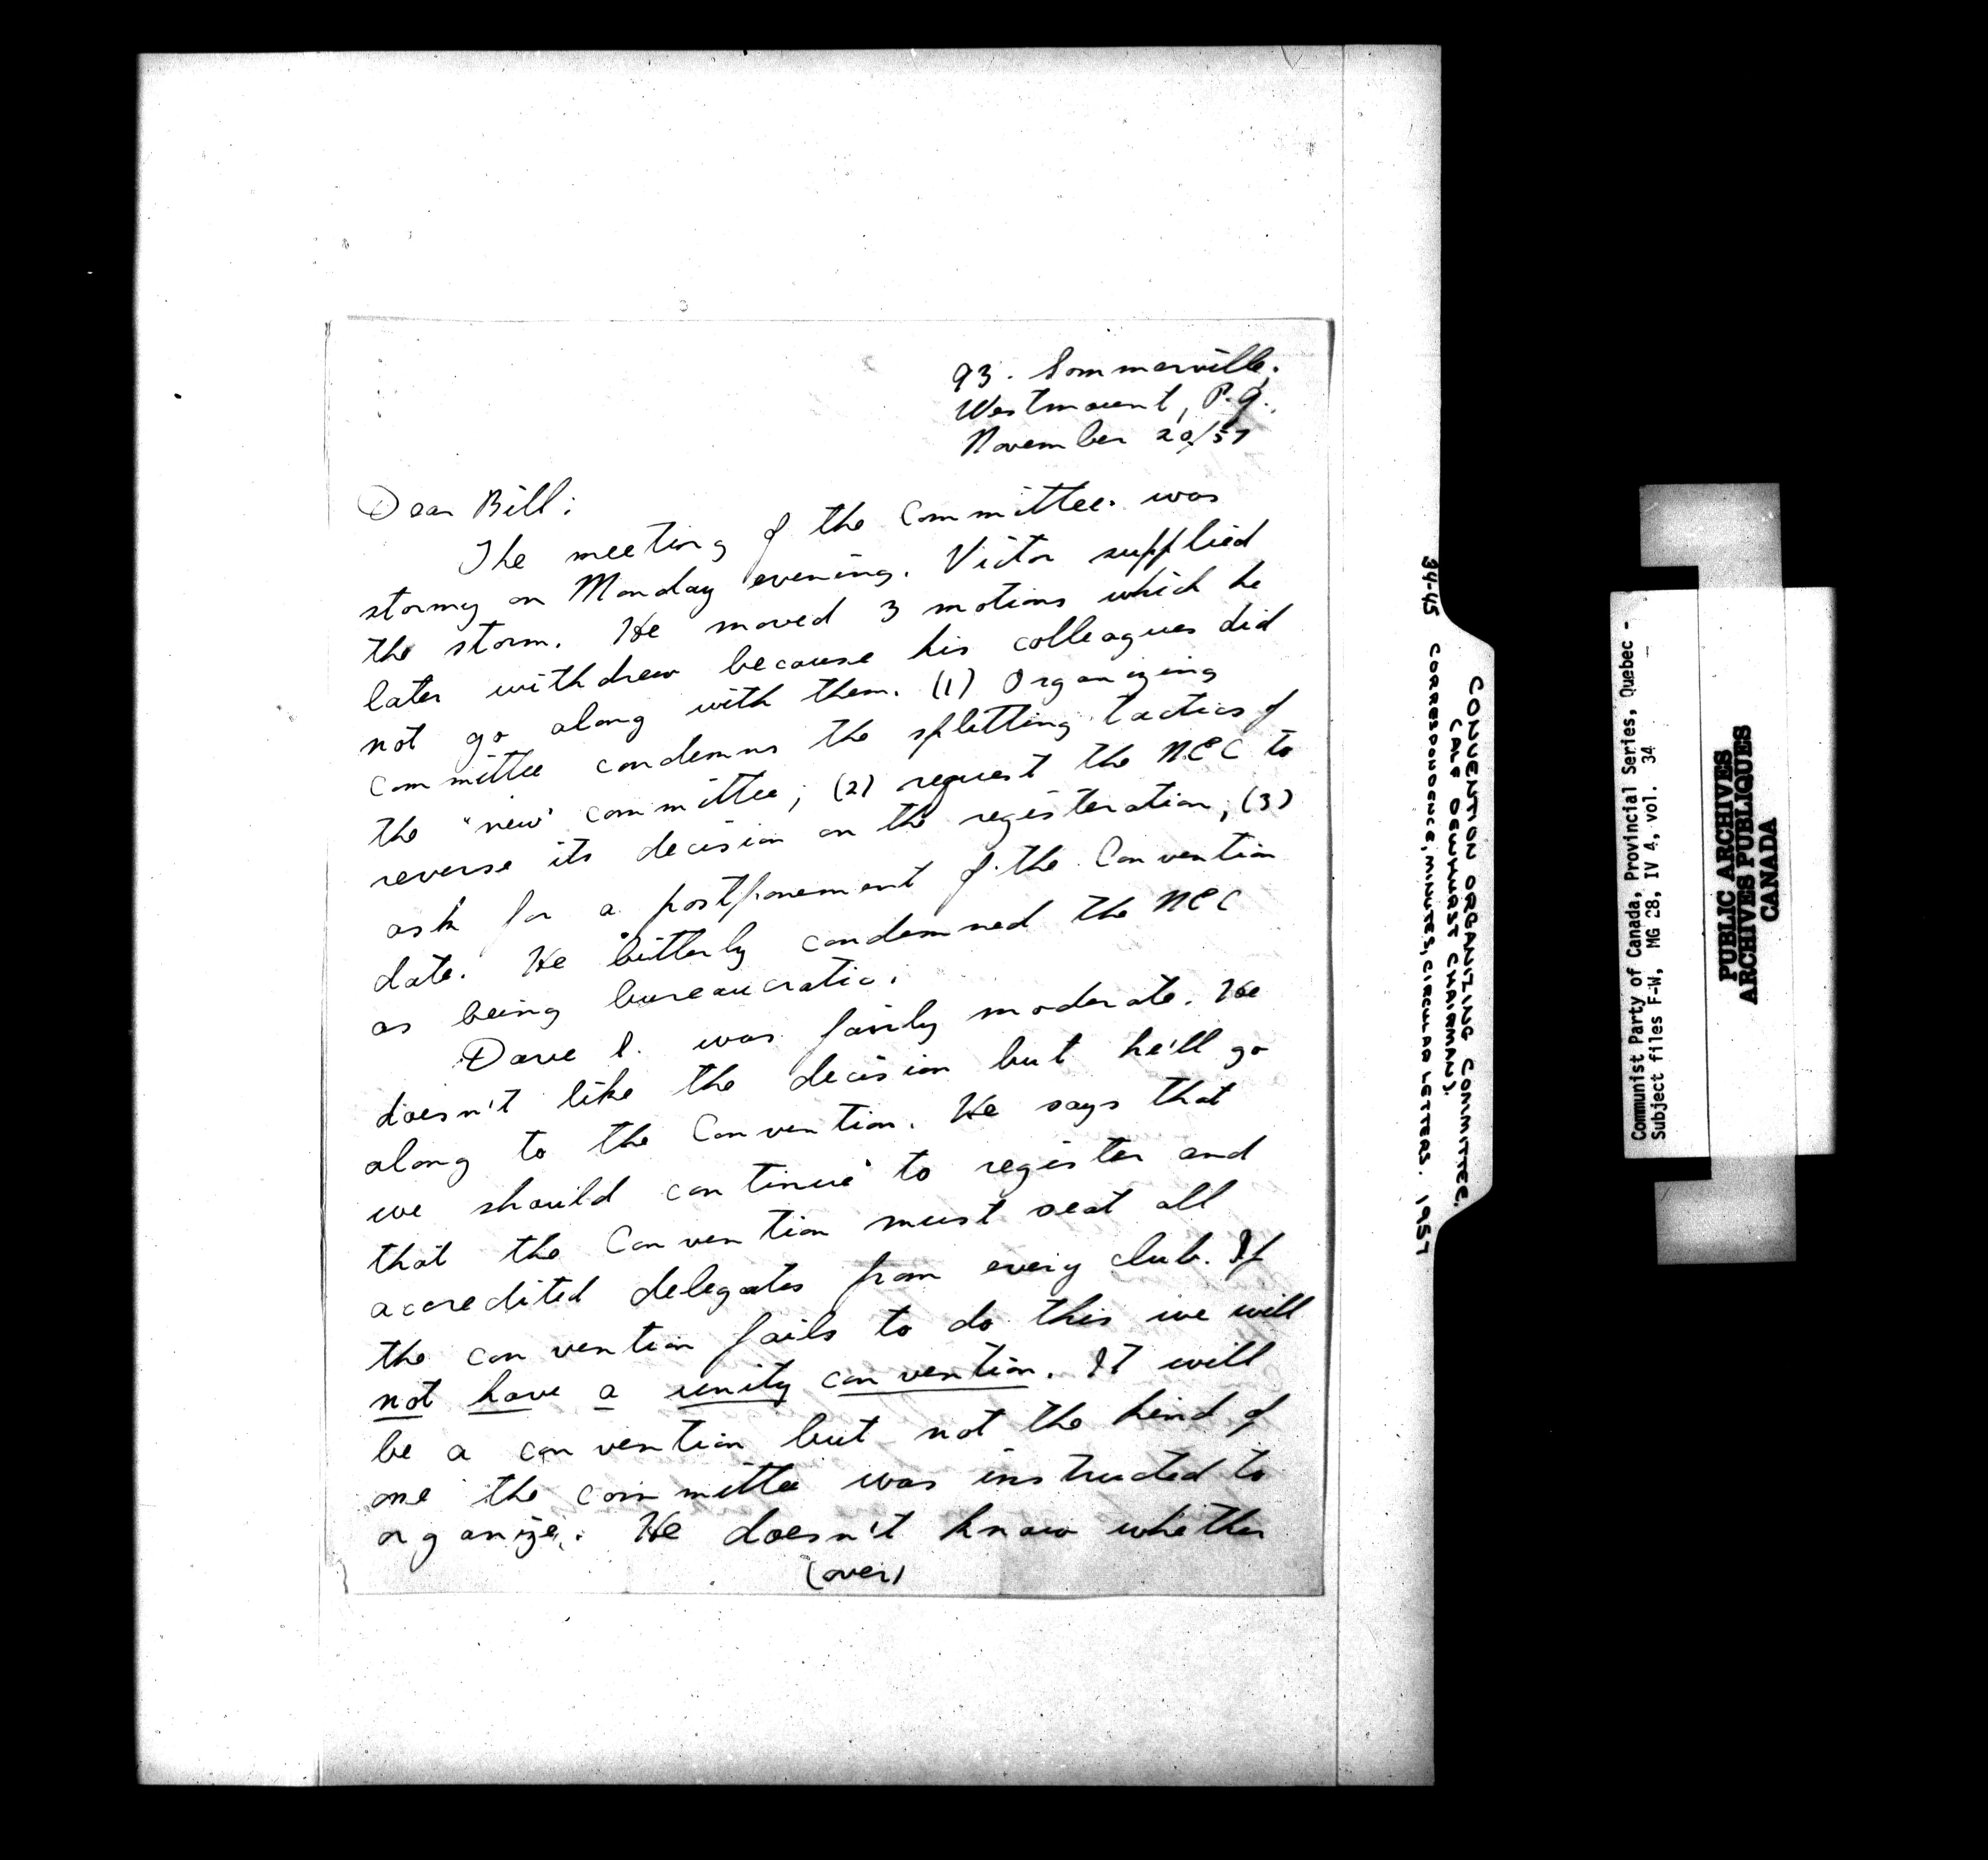 93. Sommerville,
Westmount, P.Q.,
November 20/57
Dear Bill:
The meeting of the Committee was
stormy on Monday evening. Victor supplied
the storm. He moved 3 motions which he
later withdrew because his colleagues did
not go along with them. (1) Organizing
committee condemns the splitting tactics of
the "new" committee; (2) request the NEC to
reverse its decision on the registeration; (3)
ask for a postponement of the Convention
date. He bitterly condemned the NEC
as being bureaucratic.
Dave l. was fairly moderate. He
doesn't like the decision but he'll go
along to the Convention. He says that
we should continue to register and
that the Convention must seat all
accredited delegates from every club. If
the convention fails to do this we will
not have a unity convention. It will
be a convention but not the kind of
one the committee was instructed to
organize. He doesn't know whether
(over)
34-45 CONVENTION ORGANIZING COMMITTEE.
(CALE DEWHURST CHAIRMAN).
CORRESPONDENCE, MINUTES, CIRCULAR LETTERS. 1957
Communist Party of Canada, Provincial Series, Quebec -
Subject files F-W, MG 28, IV 4, vol. 34 -
PUBLIC ARCHIVES
ARCHIVES PUBLIQUES
CANADA